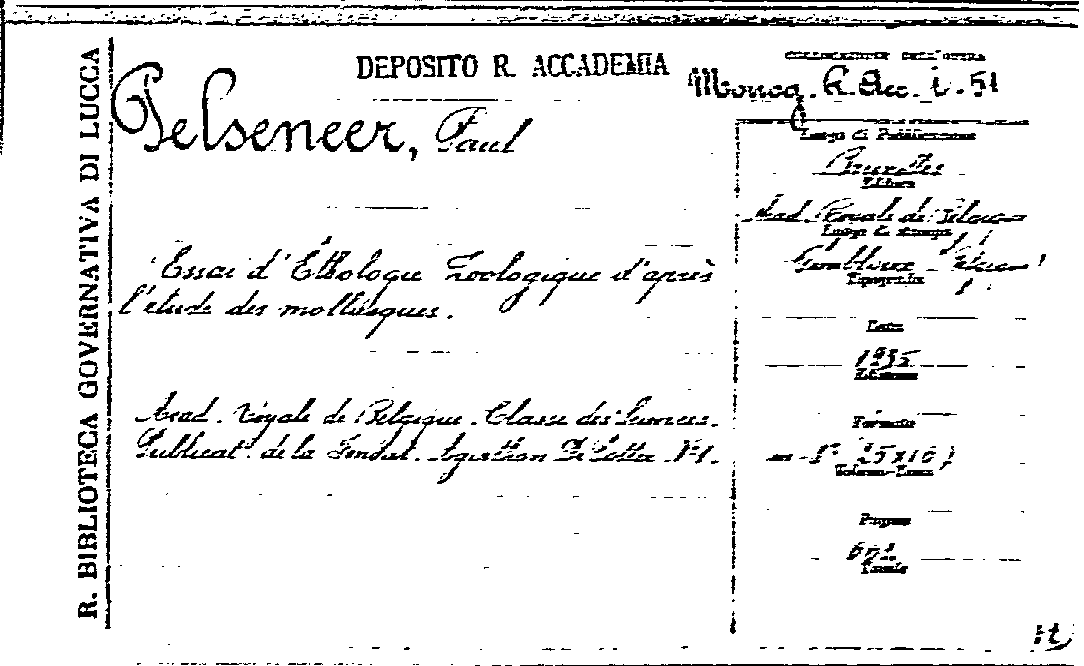 R. BIBLIOTECA GOVERNATIVA DI LUCCA
DEPOSITO R. ACCADEMIA
COLLOCAZIONE DELL'OPERA
Monog. R. Acc. i. 51
Pelseneer, Paul
Luogo di Pubblicazione
Bruxelles
Editore
Acad. Royale de Belgique
Luogo di stampa
Gembloux
Tipografia
Essai d'Éthologie Zoologique d'après
l'étude des mollusques.
Data
1935
Edizione
Acad. Royale de Belgique. Classe des Sciences.
Publicat. de la Fondat. Agathon De Potter N°1.
Formato
in-8° (25x16)
Volume-Tomo
Pagine
Tavole